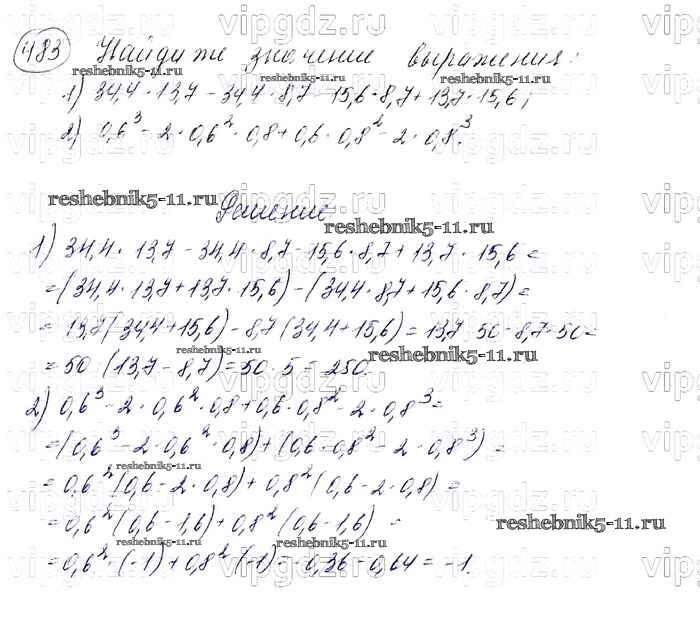 483 Найдите значение выражения:
1) 34,4 · 13,7 - 34,4 · 8,7 - 15,6 · 8,7 + 13,7 · 15,6;
2) 0,6³ - 2 · 0,6² · 0,8 + 0,6 · 0,8² - 2 · 0,8³.
Решение
1) 34,4 · 13,7 - 34,4 · 8,7 - 15,6 · 8,7 + 13,7 · 15,6 =
= (34,4 · 13,7 + 13,7 · 15,6) - (34,4 · 8,7 + 15,6 · 8,7) =
= 13,7 (34,4 + 15,6) - 8,7 (34,4 + 15,6) = 13,7 · 50 - 8,7 · 50 =
= 50 (13,7 - 8,7) = 50 · 5 = 250.
2) 0,6³ - 2 · 0,6² · 0,8 + 0,6 · 0,8² - 2 · 0,8³ =
= (0,6³ - 2 · 0,6² · 0,8) + (0,6 · 0,8² - 2 · 0,8³) =
= 0,6² (0,6 - 2 · 0,8) + 0,8² (0,6 - 2 · 0,8) =
= 0,6² (0,6 - 1,6) + 0,8² (0,6 - 1,6) =
= 0,6² · (-1) + 0,8² · (-1) = -0,36 - 0,64 = -1.
vipgdz.ru
reshebnik5-11.ru